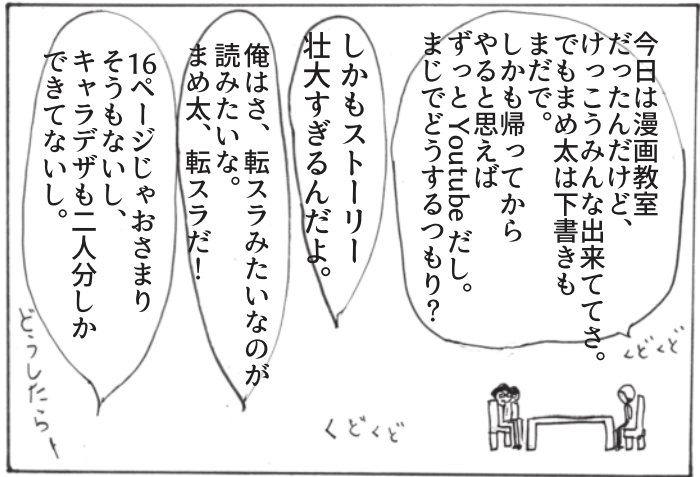 今日は漫画教室
だったんだけど、
けっこうみんな出来ててさ。
でもまめ太は下書きも
まだで。
しかも帰ってから
やると思えば
ずっとYoutubeだし。
まじでどうするつもり？
くどくど
しかもストーリー
壮大すぎるんだよ。
くどくど
俺はさ、転スラみたいなのが
読みたいな。
まめ太、転スラだ！
16ページじゃおさまり
そうもないし、
キャラデザも二人分しか
できてないし。
どうしたらー